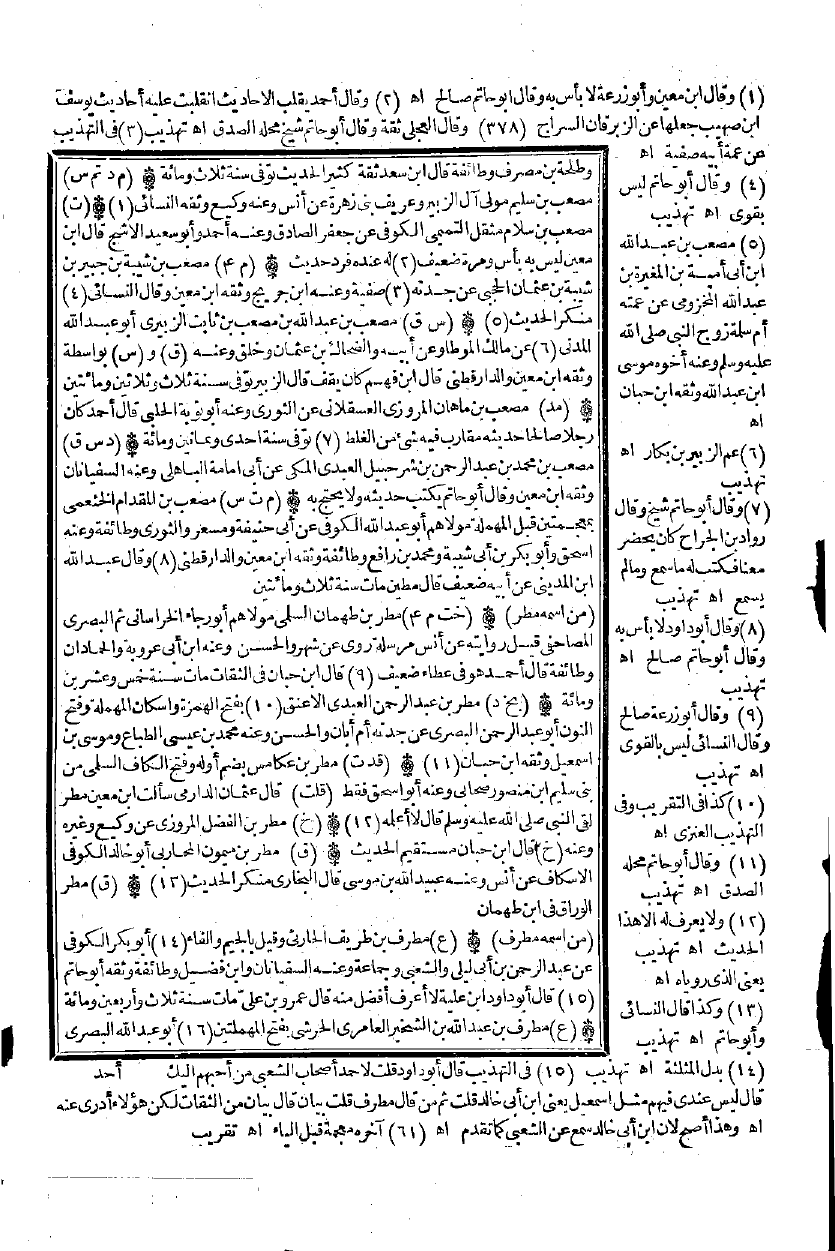 (١) وقال ابن معين وأبو زرعة لا بأس به وقال ابو حاتم صالح اه (٢) وقال أحمد يقلب الاحاديث انقلبت عليه أحاديث يوسف
ابن صهيب جعلها عن الزبرقان السراج (٣٧٨) وقال العجلي ثقة وقال أبو حاتم شيخ محله الصدق اه تهذيب (٣) في التهذيب
عن عمة أبيه صفية اه
(٤) وقال أبو حاتم ليس
بقوى اه تهذيب
(٥) مصعب بن عبد الله
ابن أبى أمية بن المغيرة بن
عبد الله المخزومى عن عمته
أم سلمة زوج النبى صلى الله
عليه وسلم وعنه أخوه موسى
ابن عبد الله وثقه ابن حبان
اه
(٦) عم الزبير بن بكار اه
تهذيب
(٧) وقال أبو حاتم شيخ وقال
رواد بن الجراح كان يحضر
معنا فكتب له ما سمع ومالم
يسمع اه تهذيب
(٨) وقال أبو داود لا بأس به
وقال أبو حاتم صالح اه
تهذيب
(٩) وقال أبو زرعة صالح
وقال النسائى ليس بالقوى
اه تهذيب
(١٠) كذا فى التقريب وفى
التهذيب العنزى اه
(١١) وقال أبو حاتم محله
الصدق اه تهذيب
(١٢) ولا يعرف له الا هذا
الحديث اه تهذيب
يعنى الذى روياه اه
(١٣) وكذا قال النسائى
وأبو حاتم اه تهذيب
وطلحة بن مصرف وطائفة قال ابن سعد ثقة كثير الحديث توفى سنة ثلاث ومائة ۞ (م د تم س)
مصعب بن سليم مولى آل الزبير وعريف بنى زهرة عن أنس وعنه وكيع وثقه النسائى (١) ۞ (ت)
مصعب بن سلام مثقل التميمى الكوفى عن جعفر الصادق وعنه أحمد وأبو سعيد الاشج قال ابن
معين ليس به بأس ومرة ضعيف (٢) له عنده فرد حديث ۞ (م ٤) مصعب بن شيبة بن جبير بن
شيبة بن عثمان الحجبى عن جدته (٣) صفية وعنه ابن جريج وثقه ابن معين وقال النسائى (٤)
منكر الحديث (٥) ۞ (س ق) مصعب بن عبد الله بن مصعب بن ثابت الزبيرى أبو عبد الله
المدنى (٦) عن مالك الموطا وعن أبيه والضحاك بن عثمان وخلق وعنه (ق) و (س) بواسطة
وثقه ابن معين والدارقطنى قال ابن فهم كان يقف قال الزبير توفى سنة ثلاث وثلاثين ومائتين
۞ (مد) مصعب بن ماهان المروزى العسقلانى عن الثورى وعنه أبو توبة الحلبى قال أحمد كان
رجلا صالحا حديثه مقارب فيه شئ من الغلط (٧) توفى سنة احدى وثمانين ومائة ۞ (د س ق)
مصعب بن محمد بن عبد الرحمن بن شرحبيل العبدى المكى عن أبى امامة الباهلى وعنه السفيانان
وثقه ابن معين وقال أبو حاتم يكتب حديثه ولا يحتج به ۞ (م ت س) مصعب بن المقدام الخثعمى
بمعجمتين قبل المهملة مولاهم أبو عبد الله الكوفى عن أبى حنيفة ومسعر والثورى وطائفة وعنه
اسحق وأبو بكر بن أبى شيبة ومحمد بن رافع وطائفة وثقه ابن معين والدارقطنى (٨) وقال عبد الله
ابن المدينى عن أبيه ضعيف قال مطين مات سنة ثلاث ومائتين
(من اسمه مطر) ۞ (خت م ٤) مطر بن طهمان السلمى مولاهم أبو رجاء الخراسانى ثم البصرى
المصاحفى قيل روايته عن أنس مرسلة روى عن شهر والحسن وعنه ابن أبى عروبة والحمادان
وطائفة قال أحمد هو فى عطاء ضعيف (٩) قال ابن حبان فى الثقات مات سنة خمس وعشرين
ومائة ۞ (بخ د) مطر بن عبد الرحمن العبدى الاعنق (١٠) بفتح الهمزة واسكان المهملة وفتح
النون أبو عبد الرحمن البصرى عن جدته أم أبان والحسن وعنه محمد بن عيسى الطباع وموسى بن
اسمعيل وثقه ابن حبان (١١) ۞ (قد ت) مطر بن عكامس بضم أوله وفتح الكاف السلمى من
بنى سليم ابن منصور صحابى وعنه أبو اسحق فقط (قلت) قال عثمان الدارمى سألت ابن معين مطر
لقى النبى صلى الله عليه وسلم قال لا أعلمه (١٢) ۞ (خ) مطر بن الفضل المروزى عن وكيع وغيره
وعنه (خ) قال ابن حبان مستقيم الحديث ۞ (ق) مطر بن ميمون المحاربى أبو خالد الكوفى
الاسكاف عن أنس وعنه عبيد الله بن موسى قال البخارى منكر الحديث (١٣) ۞ (ق) مطر
الوراق فى ابن طهمان
(من اسمه مطرف) ۞ (ع) مطرف بن طريف الحارثى وقيل بالجيم والفاء (١٤) أبو بكر الكوفى
عن عبد الرحمن بن أبى ليلى والشعبى وجماعة وعنه السفيانان وابن فضيل وطائفة وثقه أبو حاتم
(١٥) قال أبو داود ابن علية لا أعرف أفضل منه قال عمرو بن على مات سنة ثلاث وأربعين ومائة
۞ (ع) مطرف بن عبد الله بن الشخير العامرى الحرشى بفتح المهملتين (١٦) أبو عبد الله البصرى
(١٤) بدل المثلثة اه تهذيب (١٥) فى التهذيب قال أبو داود قلت لاحمد أصحاب الشعبى من أحبهم اليك أحمد
قال ليس عندى فيهم مثل اسمعيل يعنى ابن أبى خالد قلت ثم من قال مطرف قلت بيان قال بيان من الثقات لكن هؤلاء أدرى عنه
اه وهذا أصح لان ابن أبى خالد سمع عن الشعبى كما تقدم اه (٦١) آخره معجمة قبل الياء اه تقريب